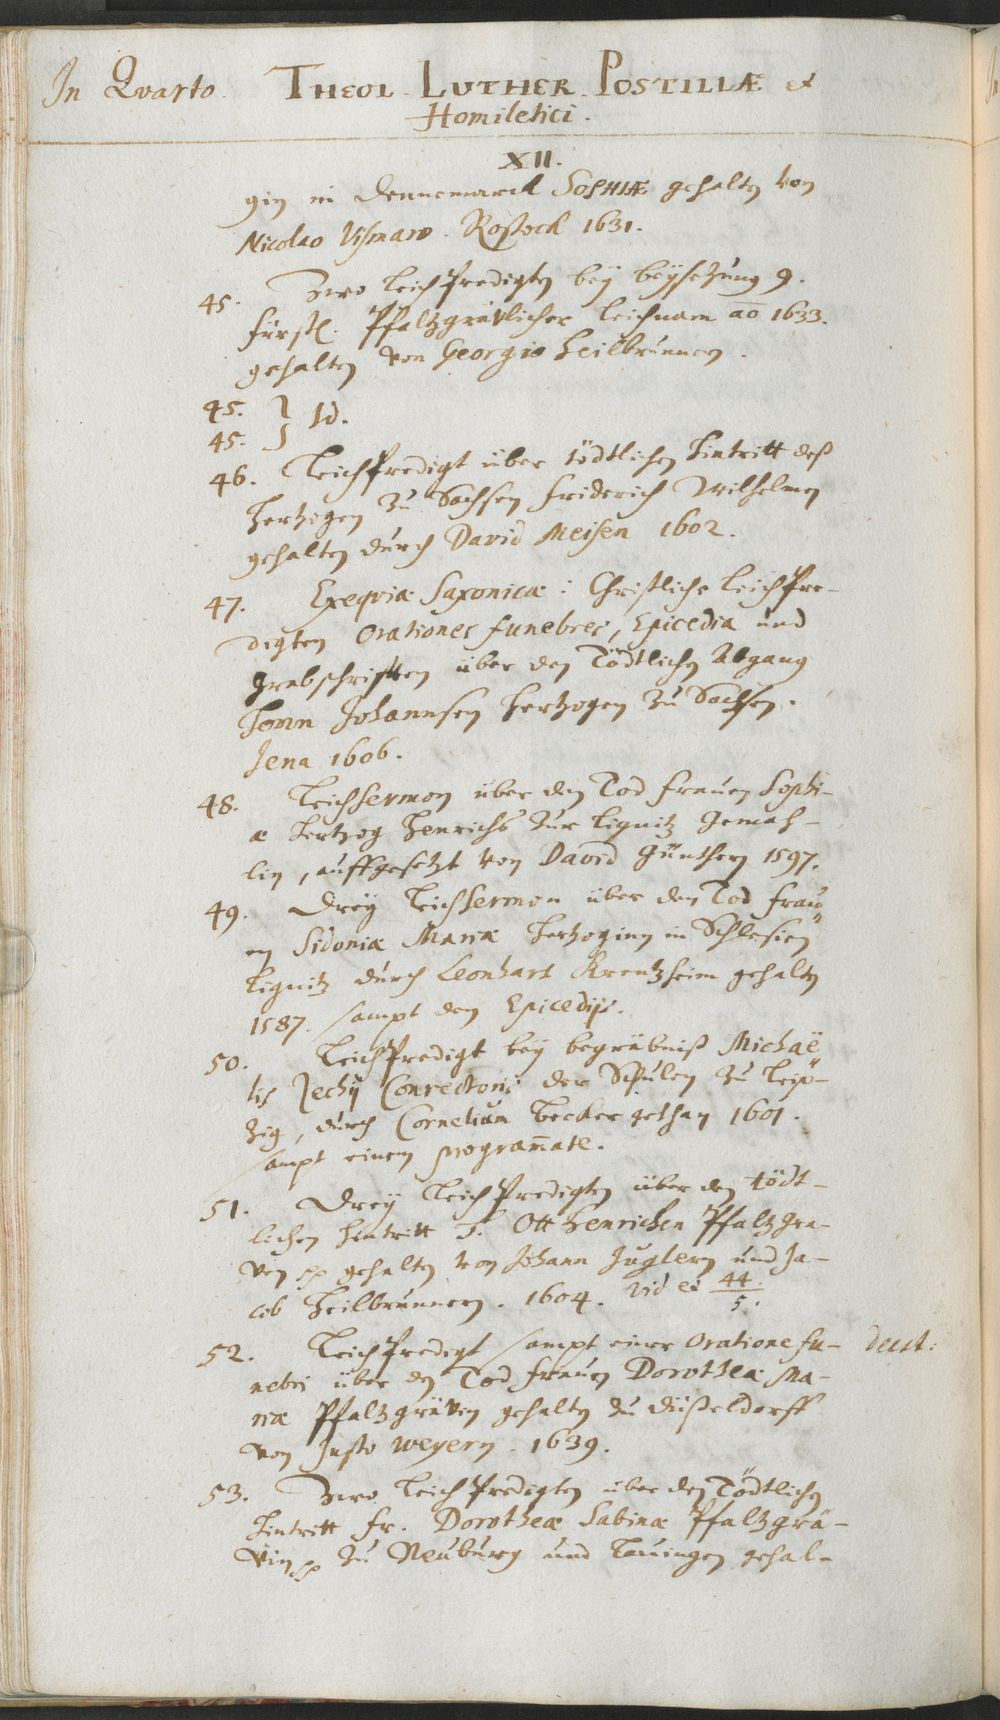 In Qvarto. THEOL. LUTHER. POSTILLÆ et
Homiletici.
XII.
gin in Dennemarck SOPHIÆ gehalten von
Nicolao Vismaro. Rostock 1631.
45. Zwo LeichPredigten bey beysetzung 9.
fürstl. Pfaltzgrävlicher leichnam ao 1633.
gehalten von Georgio Heilbrunnen.
45. } Id.
45.
46. LeichPredigt über tödtlichen Hintritt deß
Hertzogen zu Sachsen Friderich Wilhelmen
gehalten durch David Meisen 1602.
47. Exeqviæ Saxonicæ: Christliche LeichPre-
digten Orationes funebres, Epicedia und
Grabschrifften über den Tödtlichen Abgang
Herrn Johannsen Hertzogen zu Sachsen.
Jena 1606.
48. LeichSermon über den Tod Frauen Sophi-
æ Hertzog Henrichs zur Lignitz Gemah-
lin, auffgesetzt von David Günthern 1597.
49. Drey LeichSermon über den Tod Frau-
en Sidoniæ Mariæ Hertzoginn in Schlesien
Lignitz durch Leonhart Krentzheim gehalten
1587. sampt den Epicediis.
50. LeichPredigt bey begräbniß Michaë-
lis Zechij Conrectoris der Schulen zu Leip-
zig, durch Cornelium Becker gethan 1601.
sampt einem programmate.
51. Drey LeichPredigten über den tödt-
lichen Hintritt H. Ott Henrichen Pfaltzgra-
ven gehalten von Johann Juglern und Ja-
cob Heilbrunnern. 1604. vid et 44/5.
52. LeichPredigt sampt einer Oratione fu- deest:
nebri über den Tod Frauen Dorotheæ Ma-
riæ Pfaltzgrävin gehalten zu Düßeldorff
von Justo Weyern. 1639.
53. Zwo LeichPredigten über den Tödtlichen
Hintritt Fr. Dorotheæ Sabinæ Pfaltzgrä-
vin zu Neuburg und Lauingen gehal-